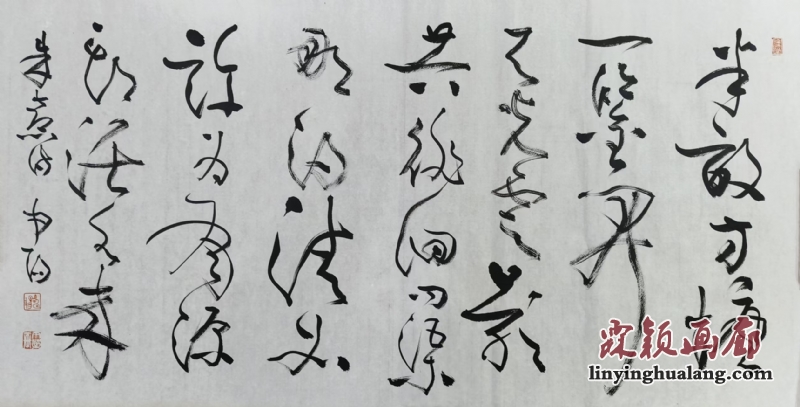 半畝方塘
一鑒開
天光雲影
共徘徊問渠
那得清如
許為有源
頭活水來
朱熹詩
霖颖画廊
linyinghualang.com